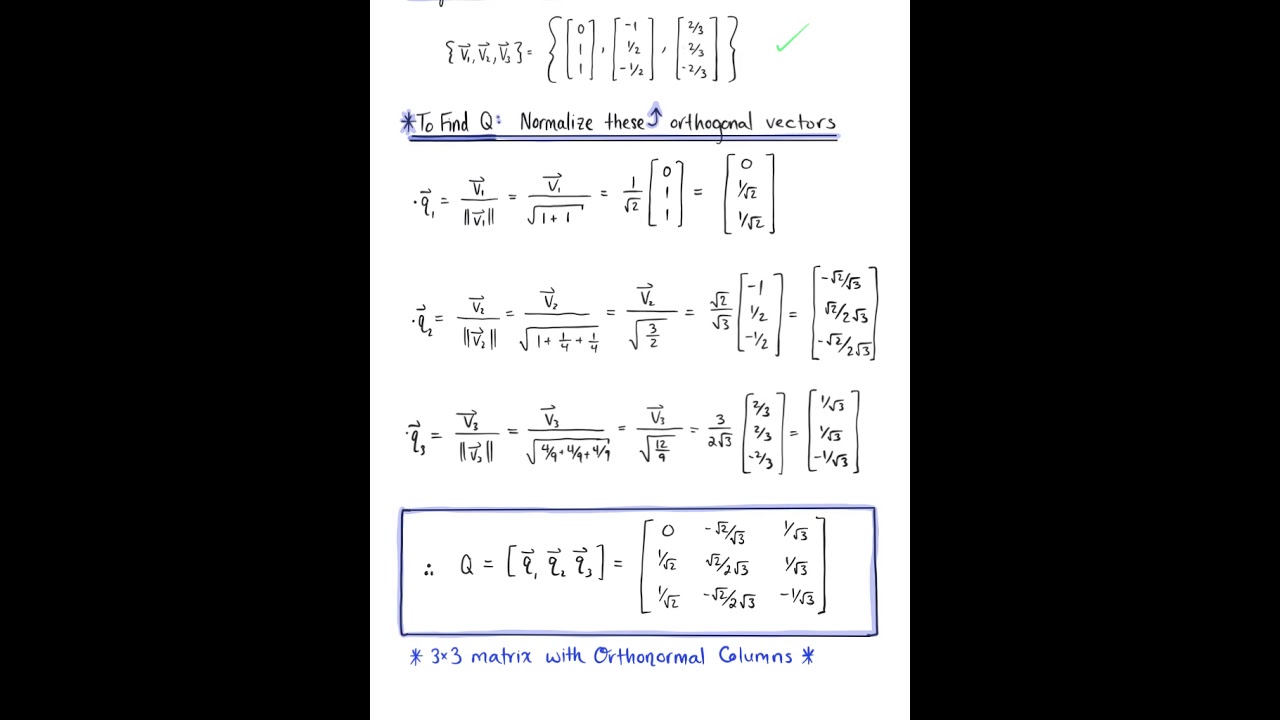 {v⃗₁, v⃗₂, v⃗₃} = { [0 1 1], [-1 1/2 -1/2], [2/3 2/3 -2/3] } ✓
*To Find Q: Normalize these ↑ orthogonal vectors
· q⃗₁ = v⃗₁/||v⃗₁|| = v⃗₁/√(1+1) = 1/√2 [0 1 1] = [0 1/√2 1/√2]
· q⃗₂ = v⃗₂/||v⃗₂|| = v⃗₂/√(1+1/4+1/4) = v⃗₂/√(3/2) = √2/√3 [-1 1/2 -1/2] = [-√2/√3 √2/2√3 -√2/2√3]
· q⃗₃ = v⃗₃/||v⃗₃|| = v⃗₃/√(4/9+4/9+4/9) = v⃗₃/√(12/9) = 3/2√3 [2/3 2/3 -2/3] = [1/√3 1/√3 -1/√3]
∴ Q = [q⃗₁ q⃗₂ q⃗₃] = [0 -√2/√3 1/√3
1/√2 √2/2√3 1/√3
1/√2 -√2/2√3 -1/√3]
* 3×3 matrix with Orthonormal Columns *